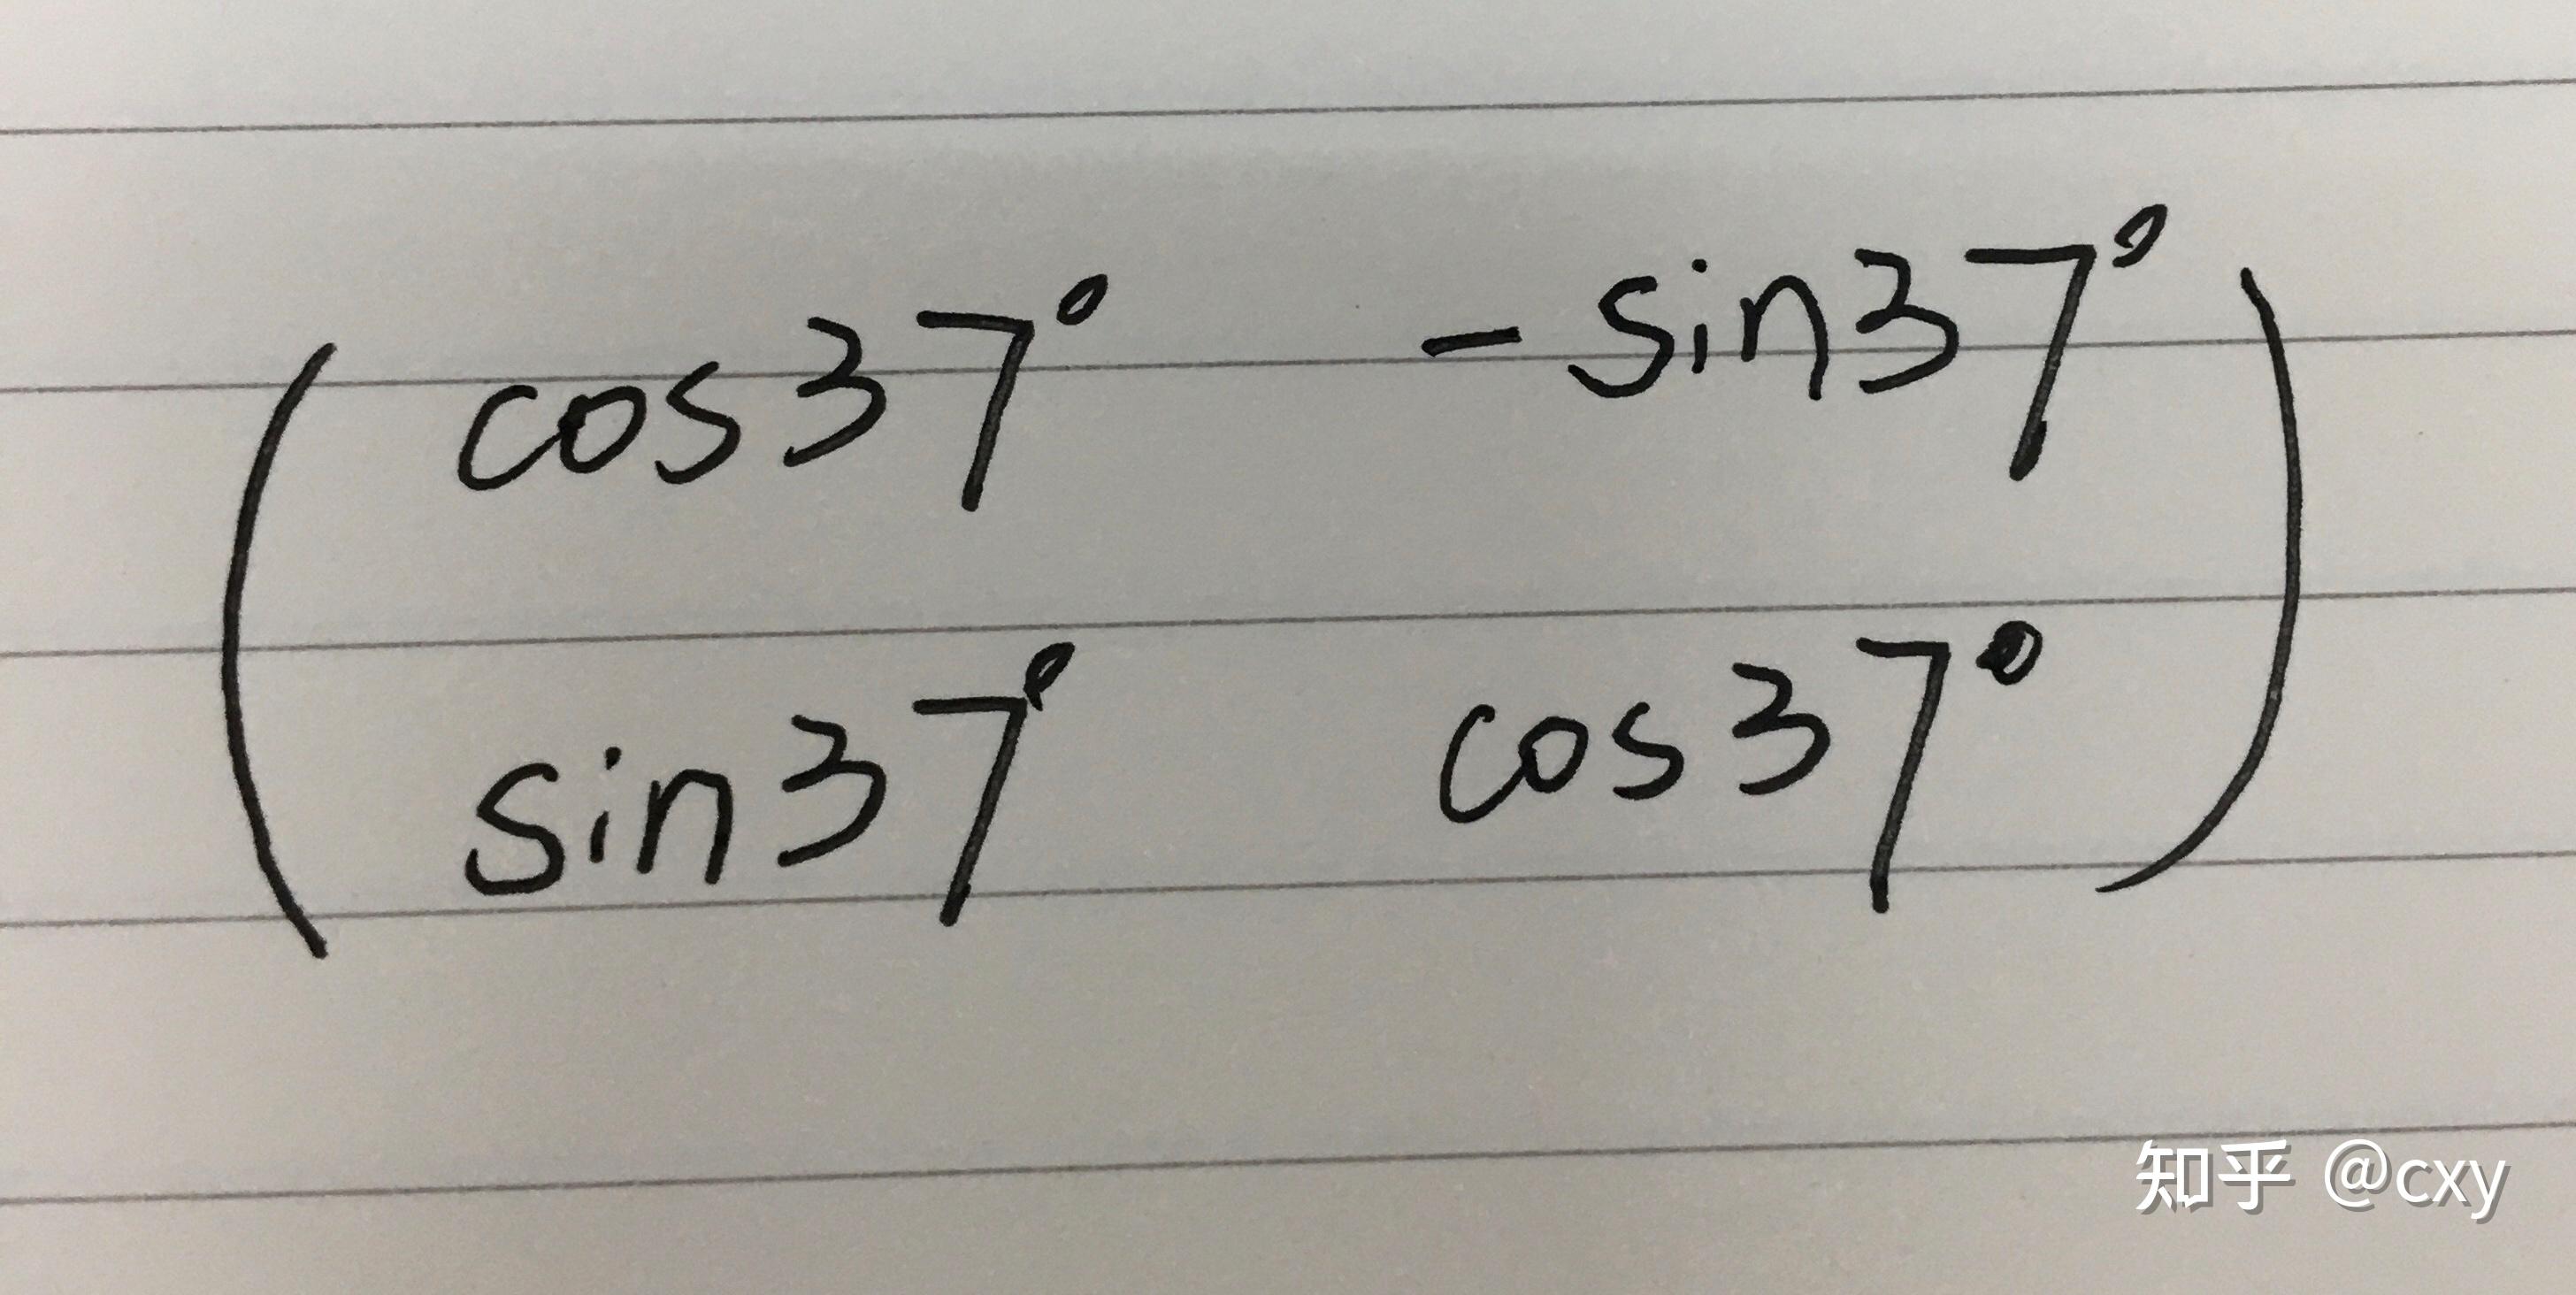 ( cos37° -sin37° )
sin37° cos37°
知乎 @cxy